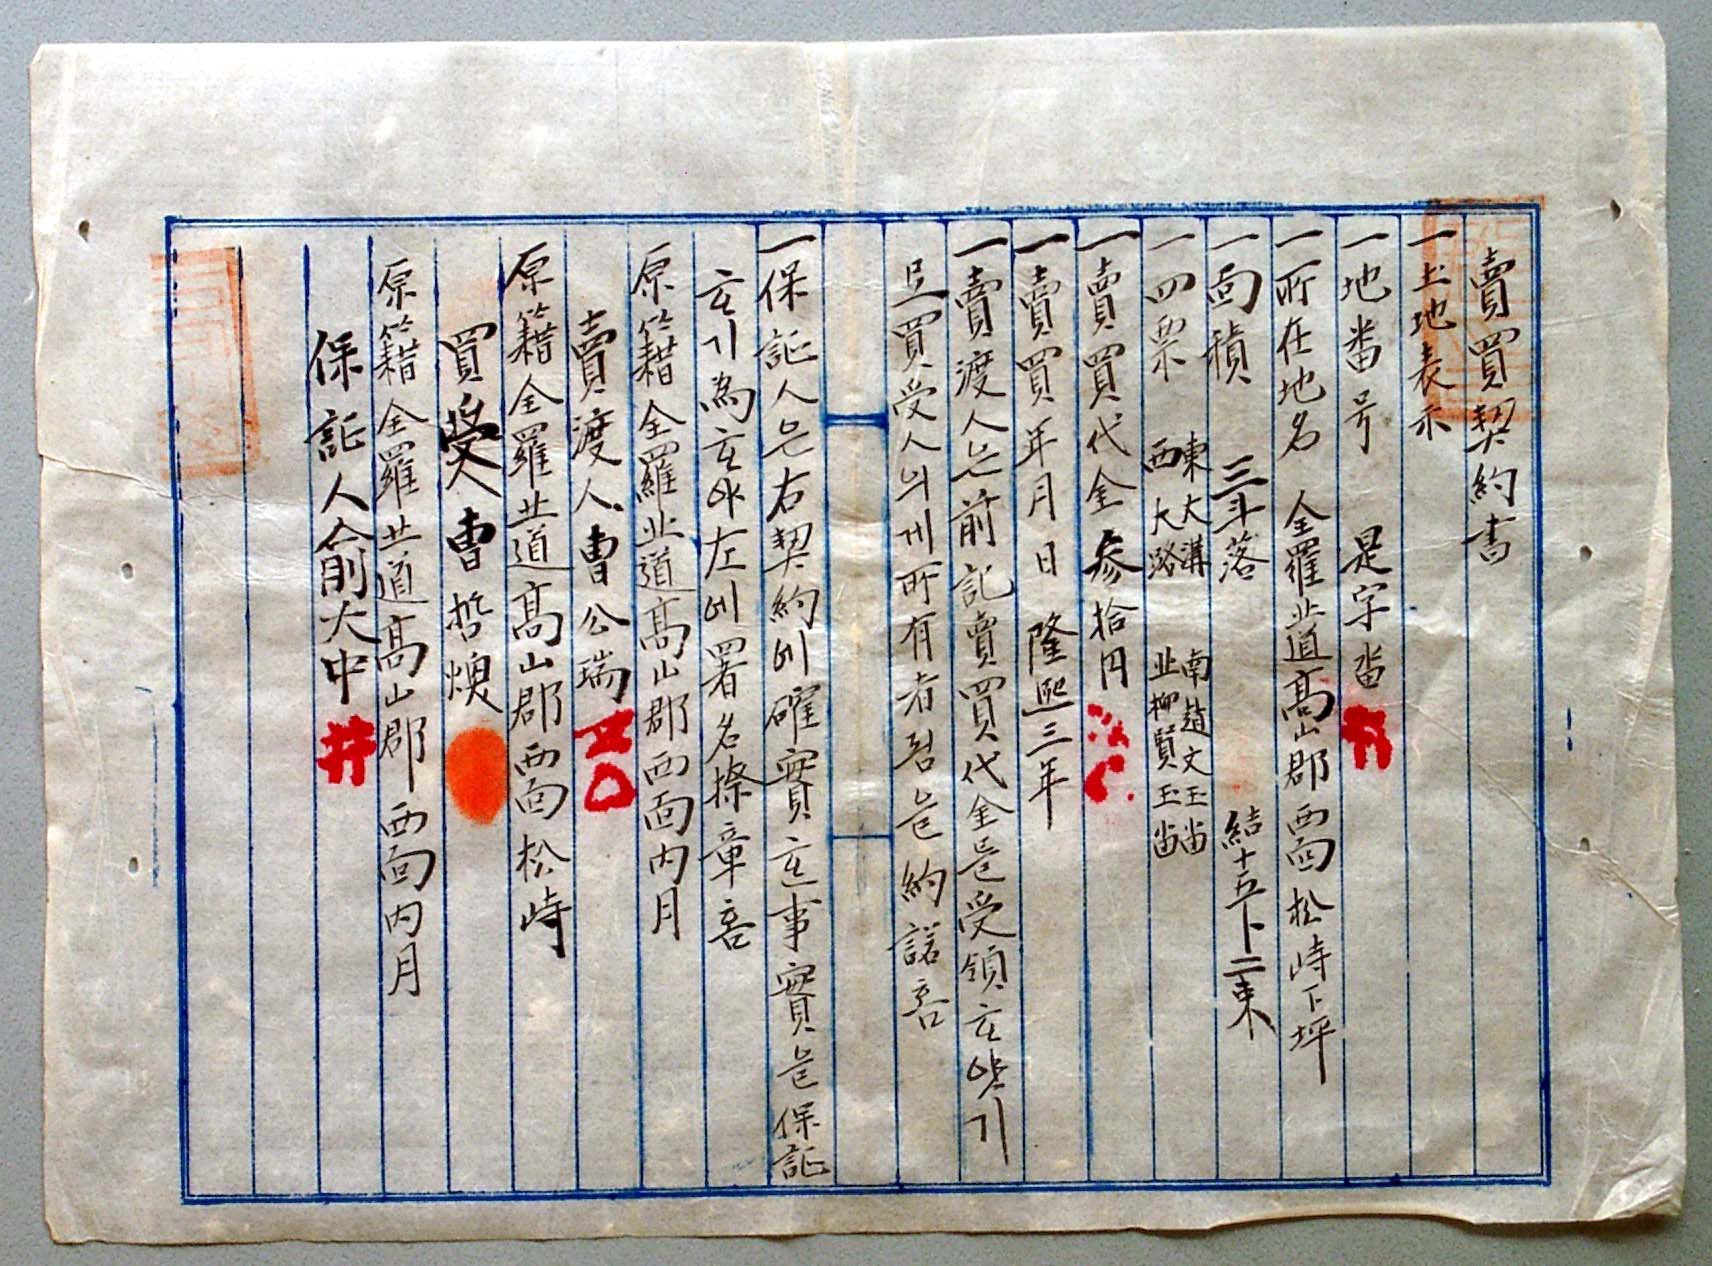 賣買契約書
一土地表示
一地番号 是字畓
一所在地名 全羅北道高山郡西面松峙下坪
一面積 三斗落 結十五卜二束
一四票 東大溝 西大路 南趙文玉畓 北柳賢玉畓
一賣買代金參拾円
一賣買年月日 隆熙三年
一賣渡人은前記賣買代金을受領하얏기
로買受人의게所有者됨을約諾홈
一保証人은右契約에確實한事實을保証
하기爲하야左에署名捺章홈
原籍全羅北道高山郡西面內月
賣渡人曺公瑞
原籍全羅北道高山郡西面松峙
買受 曺哲煥
原籍全羅北道高山郡西面內月
保証人兪大中